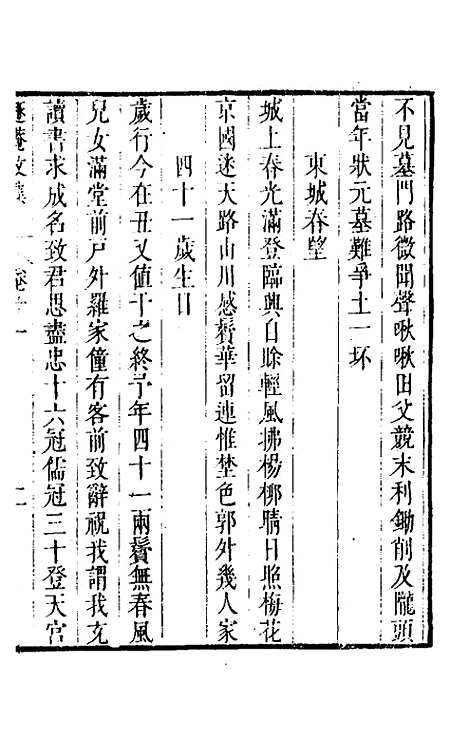 不見墓門路微聞聲啾啾田父競末利鋤削及隴頭
當年狀元墓難爭土一抔
東城春望
城上春光滿登臨興自賒輕風拂楊柳晴日照梅花
京國迷天路山川感鬢華留連惟埜色郭外幾人家
四十一歲生日
歲行今在丑又値十之終予年四十一兩鬢無春風
兒女滿堂前戸外羅家僮有客前致辭祝我謂我充
讀書求成名致君思盡忠十六冠儒冠三十登天官
文集